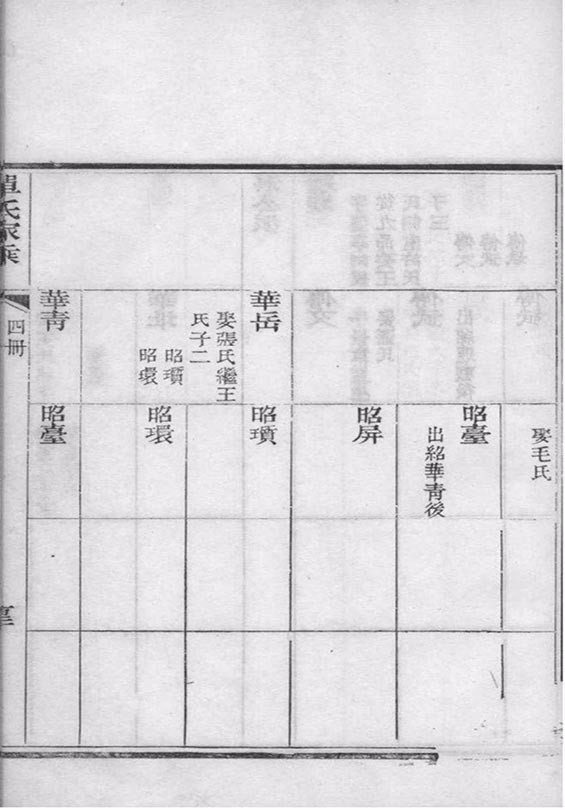 娶毛氏
昭臺
出紹華青後
昭屏
華岳
娶張氏繼王
氏子二
昭瓆
昭環
昭瓆
昭環
華青
昭臺
單氏家乘
四冊